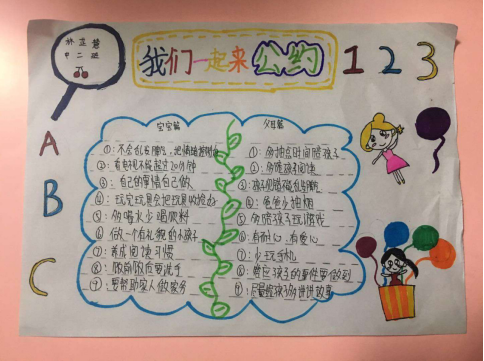 林芷萱
中二班
我们一起来公约
1 2 3
A
B
C
宝宝篇
①:不会乱发脾气,
②:看电视不能超过20分钟
③:自己的事情自己做
④:玩完玩具会把玩具收拾好
⑤:多喝水少喝饮料
⑥:做一个有礼貌的小孩子
⑦:养成阅读习惯
⑧:饭前饭后要洗手
⑨:要帮助家人做家务
父母篇
①:多抽空时间陪孩子
②:多陪孩子阅读
③:孩子犯错不乱发脾气
④:爸爸少抽烟
⑤:多陪孩子玩游戏
⑥:有耐心,有爱心
⑦:少玩手机
⑧:答应孩子的事件要做到
⑨:尽量给孩子多讲讲故事